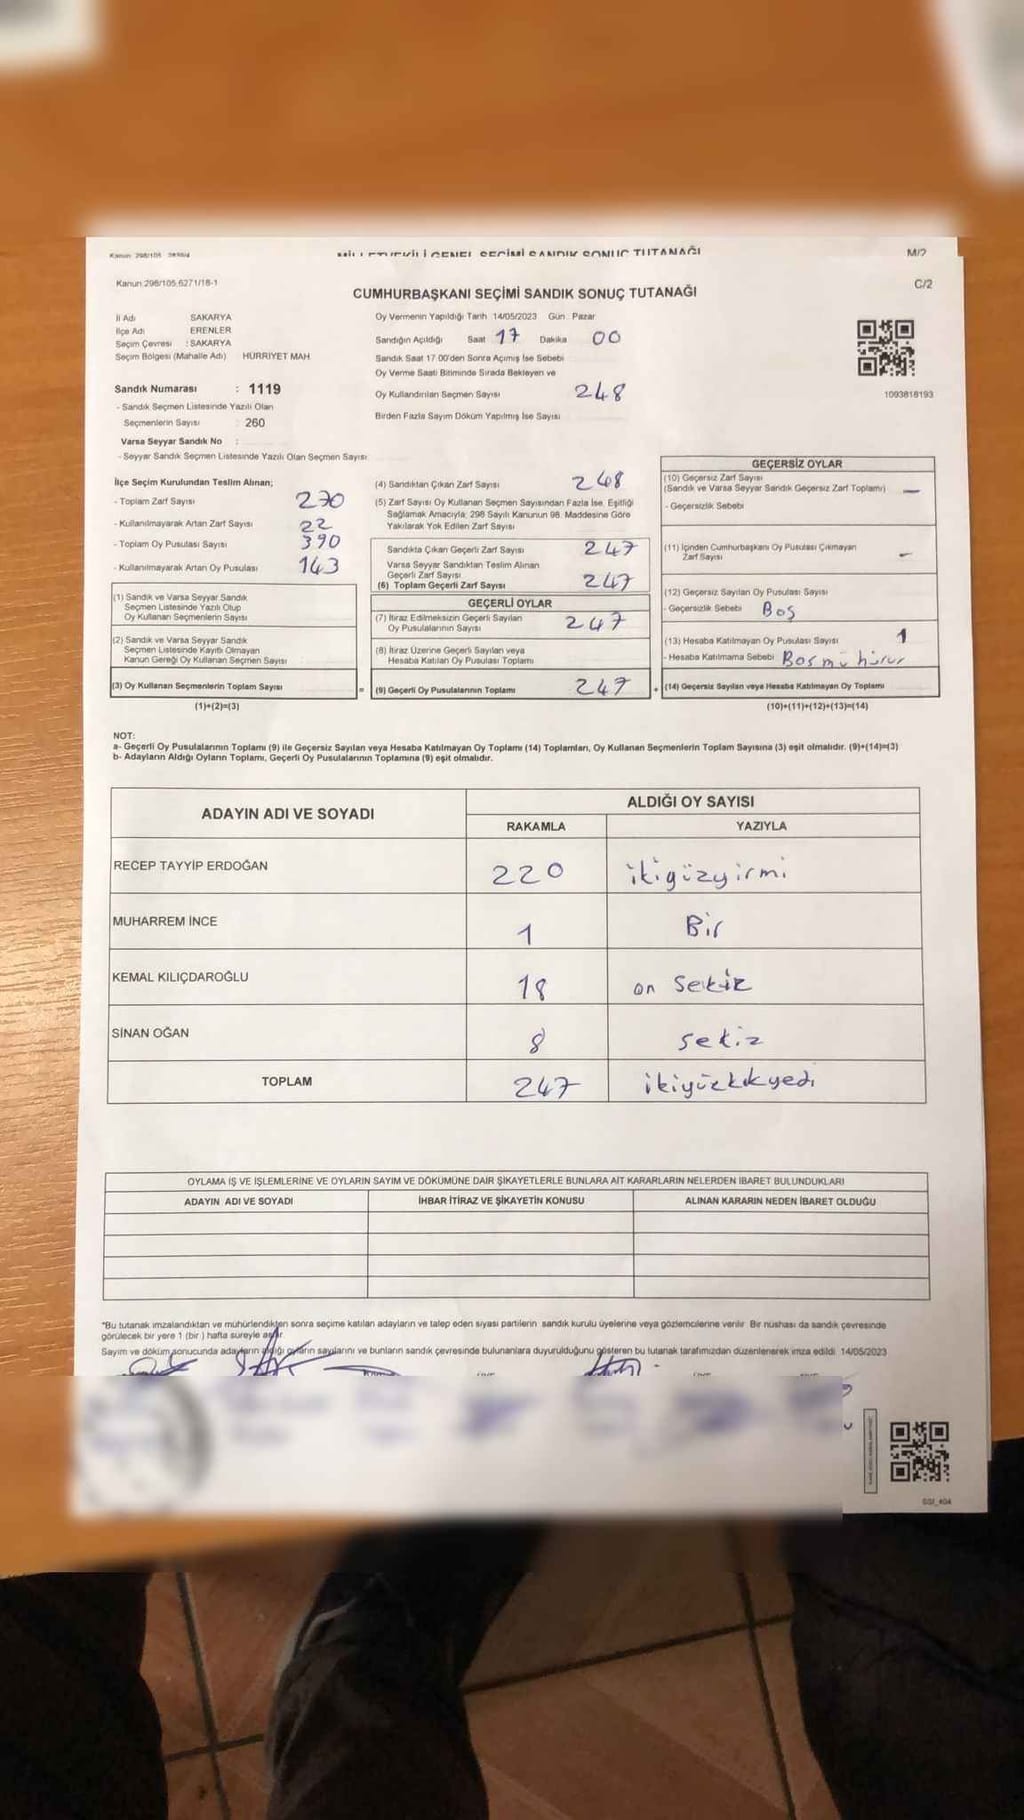 Kanun 298/105
MİLLETVEKİLİ GENEL SEÇİMİ SANDIK SONUÇ TUTANAĞI
M/2
Kanun 298/105,6271/18-1
C/2
CUMHURBAŞKANI SEÇİMİ SANDIK SONUÇ TUTANAĞI
İl Adı SAKARYA
İlçe Adı ERENLER
Seçim Çevresi : SAKARYA
Seçim Bölgesi (Mahalle Adı) HÜRRİYET MAH
Sandık Numarası : 1119
- Sandık Seçmen Listesinde Yazılı Olan
Seçmenlerin Sayısı : 260
Varsa Seyyar Sandık No :
- Seyyar Sandık Seçmen Listesinde Yazılı Olan Seçmen Sayısı
Oy Vermenin Yapıldığı Tarih 14/05/2023 Gün Pazar
Sandığın Açıldığı Saat 17 Dakika 00
Sandık Saat 17 00'den Sonra Açımış İse Sebebi
Oy Verme Saati Bitiminde Sırada Bekleyen ve
Oy Kullandırılan Seçmen Sayısı 248
Birden Fazla Sayım Döküm Yapılmış İse Sayısı
1093818193
İlçe Seçim Kurulundan Teslim Alınan;
- Toplam Zarf Sayısı 270
- Kullanılmayarak Artan Zarf Sayısı 22
- Toplam Oy Pusulası Sayısı 390
- Kullanılmayarak Artan Oy Pusulası 143
(1) Sandık ve Varsa Seyyar Sandık
Seçmen Listesinde Yazılı Olup
Oy Kullanan Seçmenlerin Sayısı
(2) Sandık ve Varsa Seyyar Sandık
Seçmen Listesinde Kayıtlı Olmayan
Kanun Gereği Oy Kullanan Seçmen Sayısı
(3) Oy Kullanan Seçmenlerin Toplam Sayısı
(1)+(2)=(3)
(4) Sandıktan Çıkan Zarf Sayısı 248
(5) Zarf Sayısı Oy Kullanan Seçmen Sayısından Fazla İse, Eşitliği
Sağlamak Amacıyla; 298 Sayılı Kanunun 98. Maddesine Göre
Yakılarak Yok Edilen Zarf Sayısı
Sandıkta Çıkan Geçerli Zarf Sayısı 247
Varsa Seyyar Sandıktan Teslim Alınan
Geçerli Zarf Sayısı
(6) Toplam Geçerli Zarf Sayısı 247
GEÇERLİ OYLAR
(7) İtiraz Edilmeksizin Geçerli Sayılan
Oy Pusulalarının Sayısı 247
(8) İtiraz Üzerine Geçerli Sayılan veya
Hesaba Katılan Oy Pusulası Toplamı
= (9) Geçerli Oy Pusulalarının Toplamı 247 +
GEÇERSİZ OYLAR
(10) Geçersiz Zarf Sayısı
(Sandık ve Varsa Seyyar Sandık Geçersiz Zarf Toplamı) –
- Geçersizlik Sebebi
(11) İçinden Cumhurbaşkanı Oy Pusulası Çıkmayan
Zarf Sayısı –
(12) Geçersiz Sayılan Oy Pusulası Sayısı
- Geçersizlik Sebebi Boş
(13) Hesaba Katılmayan Oy Pusulası Sayısı 1
- Hesaba Katılmama Sebebi Boş mühür
(14) Geçersiz Sayılan veya Hesaba Katılmayan Oy Toplamı
(10)+(11)+(12)+(13)=(14)
NOT:
a- Geçerli Oy Pusulalarının Toplamı (9) ile Geçersiz Sayılan veya Hesaba Katılmayan Oy Toplamı (14) Toplamları, Oy Kullanan Seçmenlerin Toplam Sayısına (3) eşit olmalıdır. (9)+(14)=(3)
b- Adayların Aldığı Oyların Toplamı, Geçerli Oy Pusulalarının Toplamına (9) eşit olmalıdır.
ADAYIN ADI VE SOYADI
ALDIĞI OY SAYISI
RAKAMLA YAZIYLA
RECEP TAYYİP ERDOĞAN 220 ikigüzyirmi
MUHARREM İNCE 1 Bir
KEMAL KILIÇDAROĞLU 18 on sekiz
SİNAN OĞAN 8 sekiz
TOPLAM 247 ikiyüzkıkyedi
OYLAMA İŞ VE İŞLEMLERİNE VE OYLARIN SAYIM VE DÖKÜMÜNE DAİR ŞİKAYETLERLE BUNLARA AİT KARARLARIN NELERDEN İBARET BULUNDUKLARI
ADAYIN ADI VE SOYADI İHBAR İTİRAZ VE ŞİKAYETİN KONUSU ALINAN KARARIN NEDEN İBARET OLDUĞU
*Bu tutanak imzalandıktan ve mühürlendikten sonra seçime katılan adayların ve talep eden siyasi partilerin sandık kurulu üyelerine veya gözlemcilerine verilir Bir nüshası da sandık çevresinde
görülecek bir yere 1 (bir) hafta süreyle asılır
Sayım ve döküm sonucunda adayların aldığı oyların sayılarını ve bunların sandık çevresinde bulunanlara duyurulduğunu gösteren bu tutanak tarafımızdan düzenlenerek imza edildi 14/05/2023